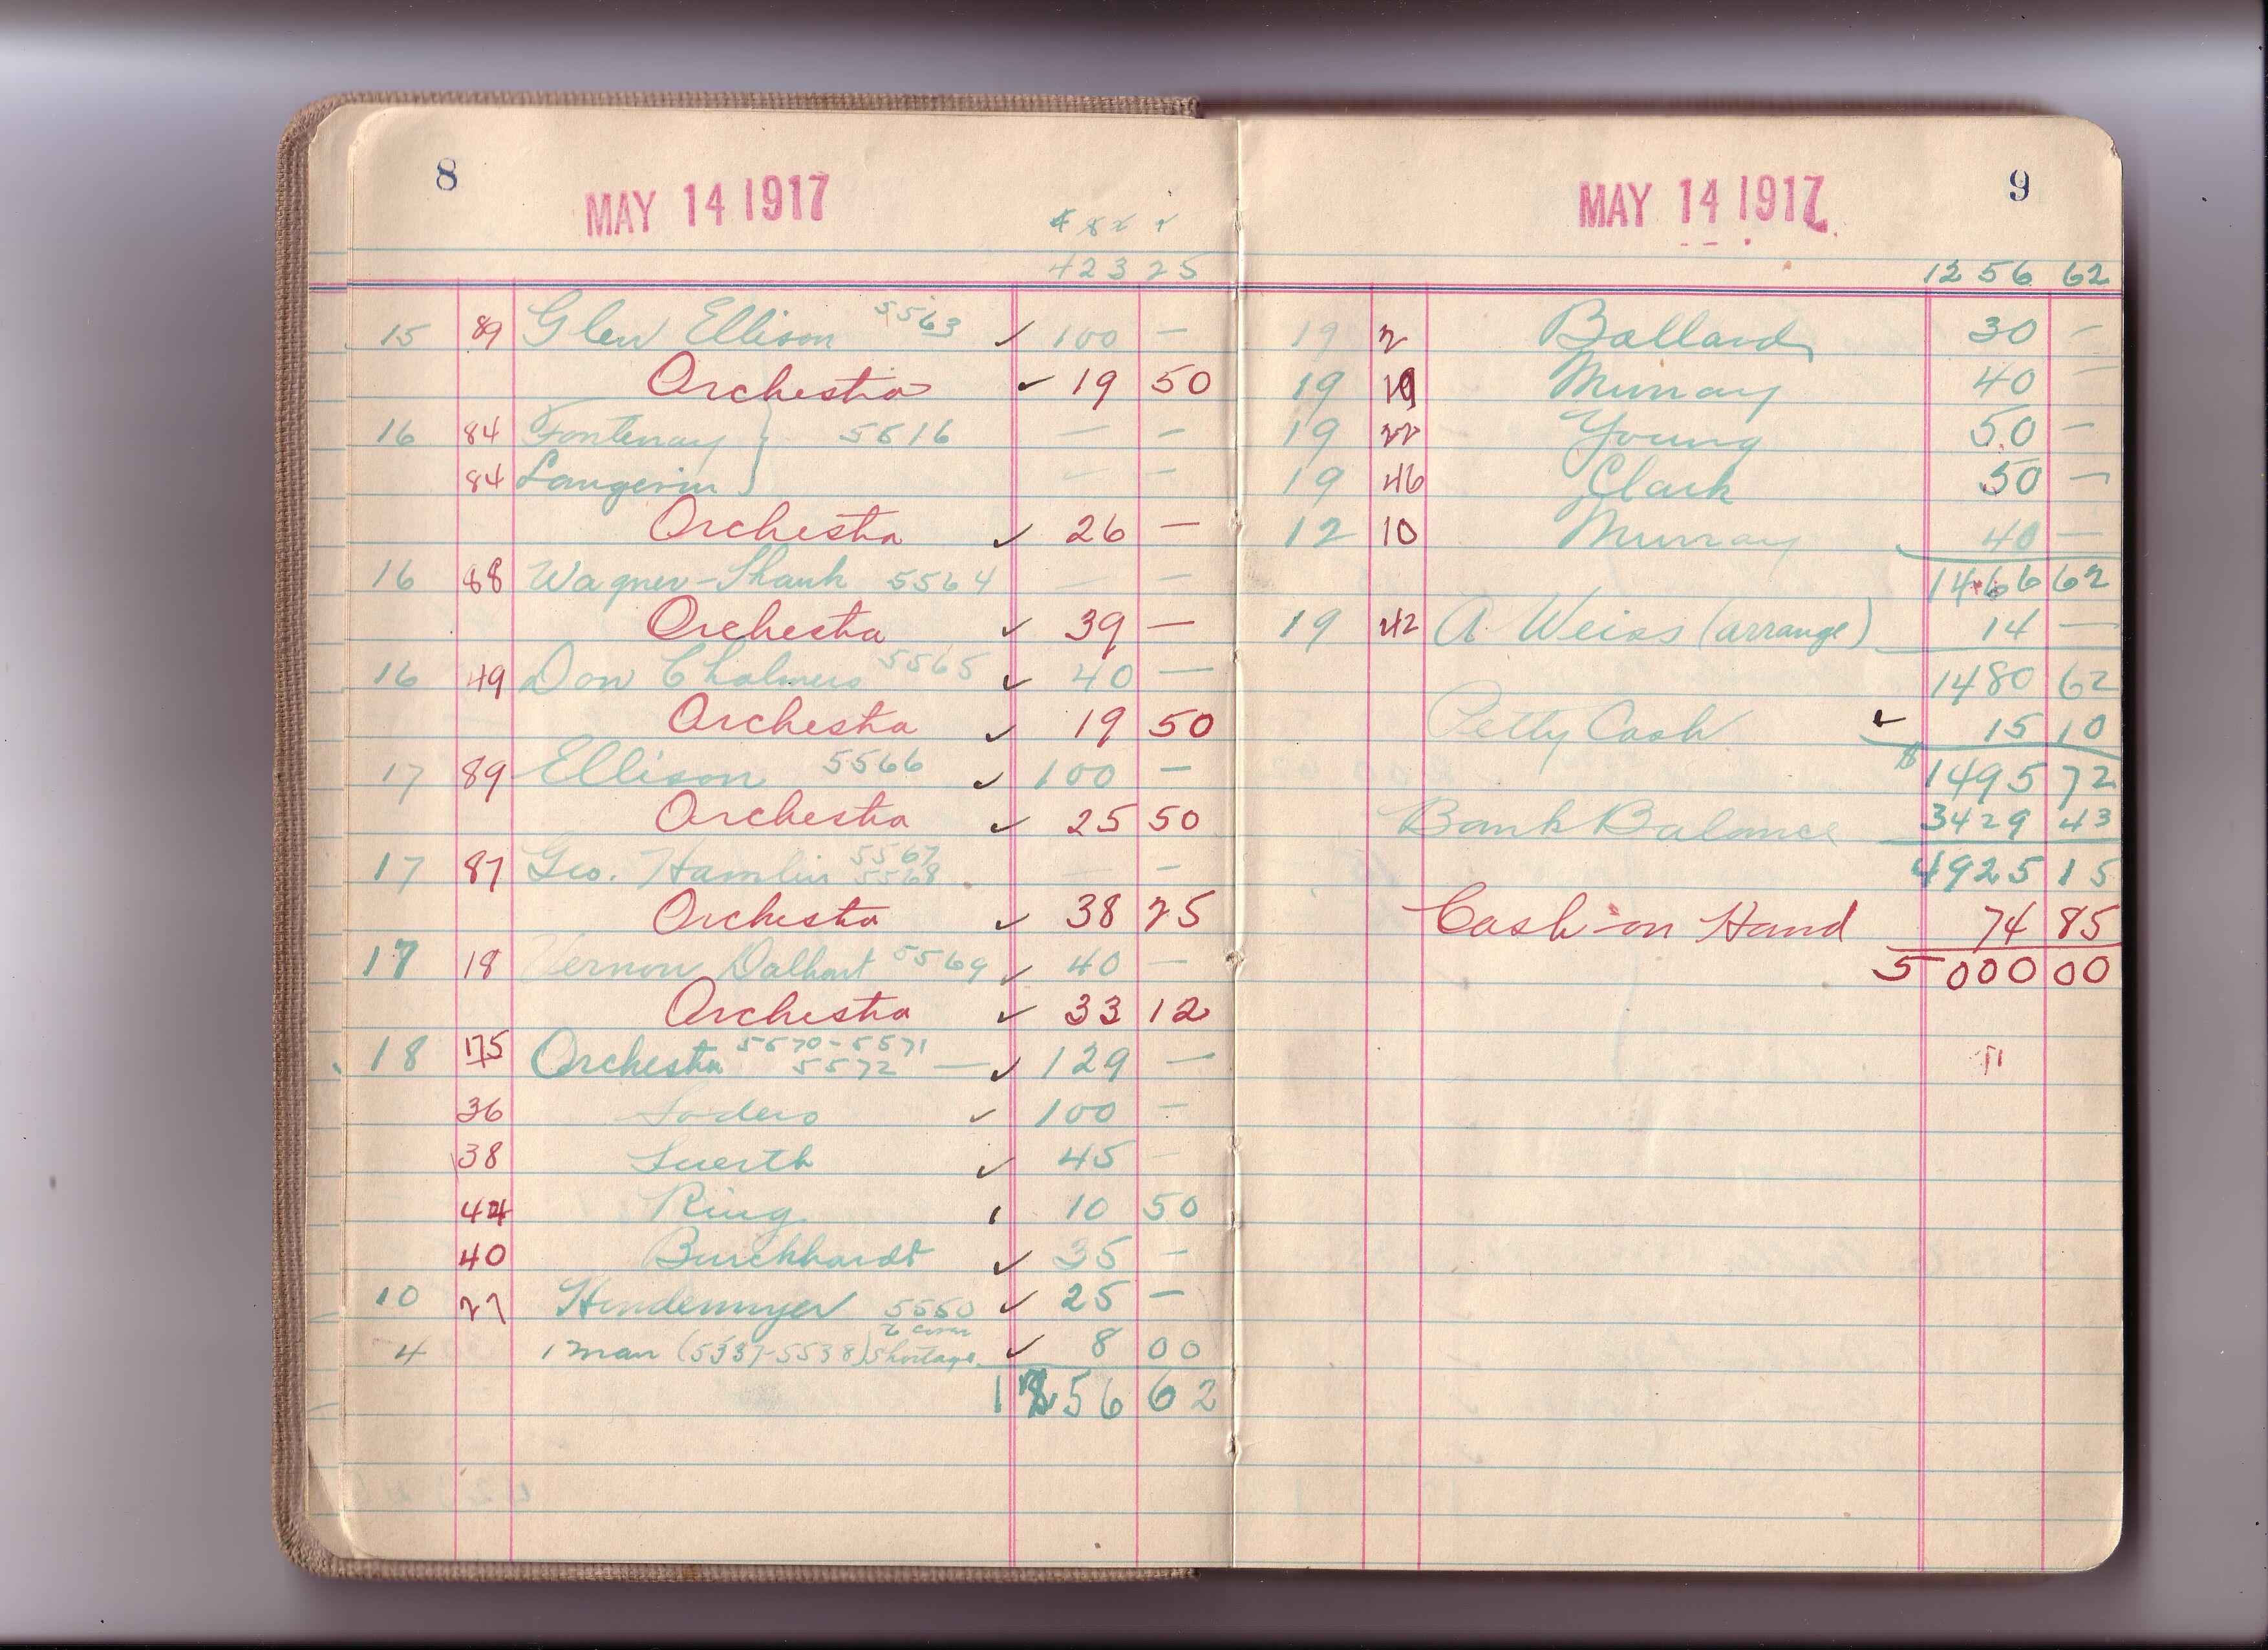 8
MAY 14 1917
423 25
15 89 Glen Ellison 5563 ✓ 100 —
Orchestra ✓ 19 50
16 84 Fontenay } 5516 — —
84 Langevin } — —
Orchestra ✓ 26 —
16 88 Wagner-Shank 5564 — —
Orchestra ✓ 39 —
16 49 Don Chalmers 5565 ✓ 40 —
Orchestra ✓ 19 50
17 89 Ellison 5566 ✓ 100 —
Orchestra ✓ 25 50
17 87 Geo. Hamlin 5567 5568 — —
Orchestra ✓ 38 25
17 18 Vernon Dalhart 5569 ✓ 40 —
Orchestra ✓ 33 12
18 175 Orchestra 5570-5571 5572 — ✓ 129 —
36 Sodero ✓ 100 —
38 Luerth ✓ 45 —
44 Ring 10 50
40 Burckhardt ✓ 35 —
10 27 Hindermyer 5550 ✓ 25 —
4 1 man (5537-5538) shortage ✓ 8 00
1256 62
MAY 14 1917
9
1256 62
19 2 Ballard 30 —
19 19 Murray 40 —
19 22 Young 50 —
19 46 Clark 50 —
12 10 Murray 40 —
1466 62
19 42 A Weiss (arrange) 14 —
1480 62
Petty Cash ✓ 15 10
$1495 72
Bank Balance 3429 43
4925 15
Cash on Hand 74 85
5000 00